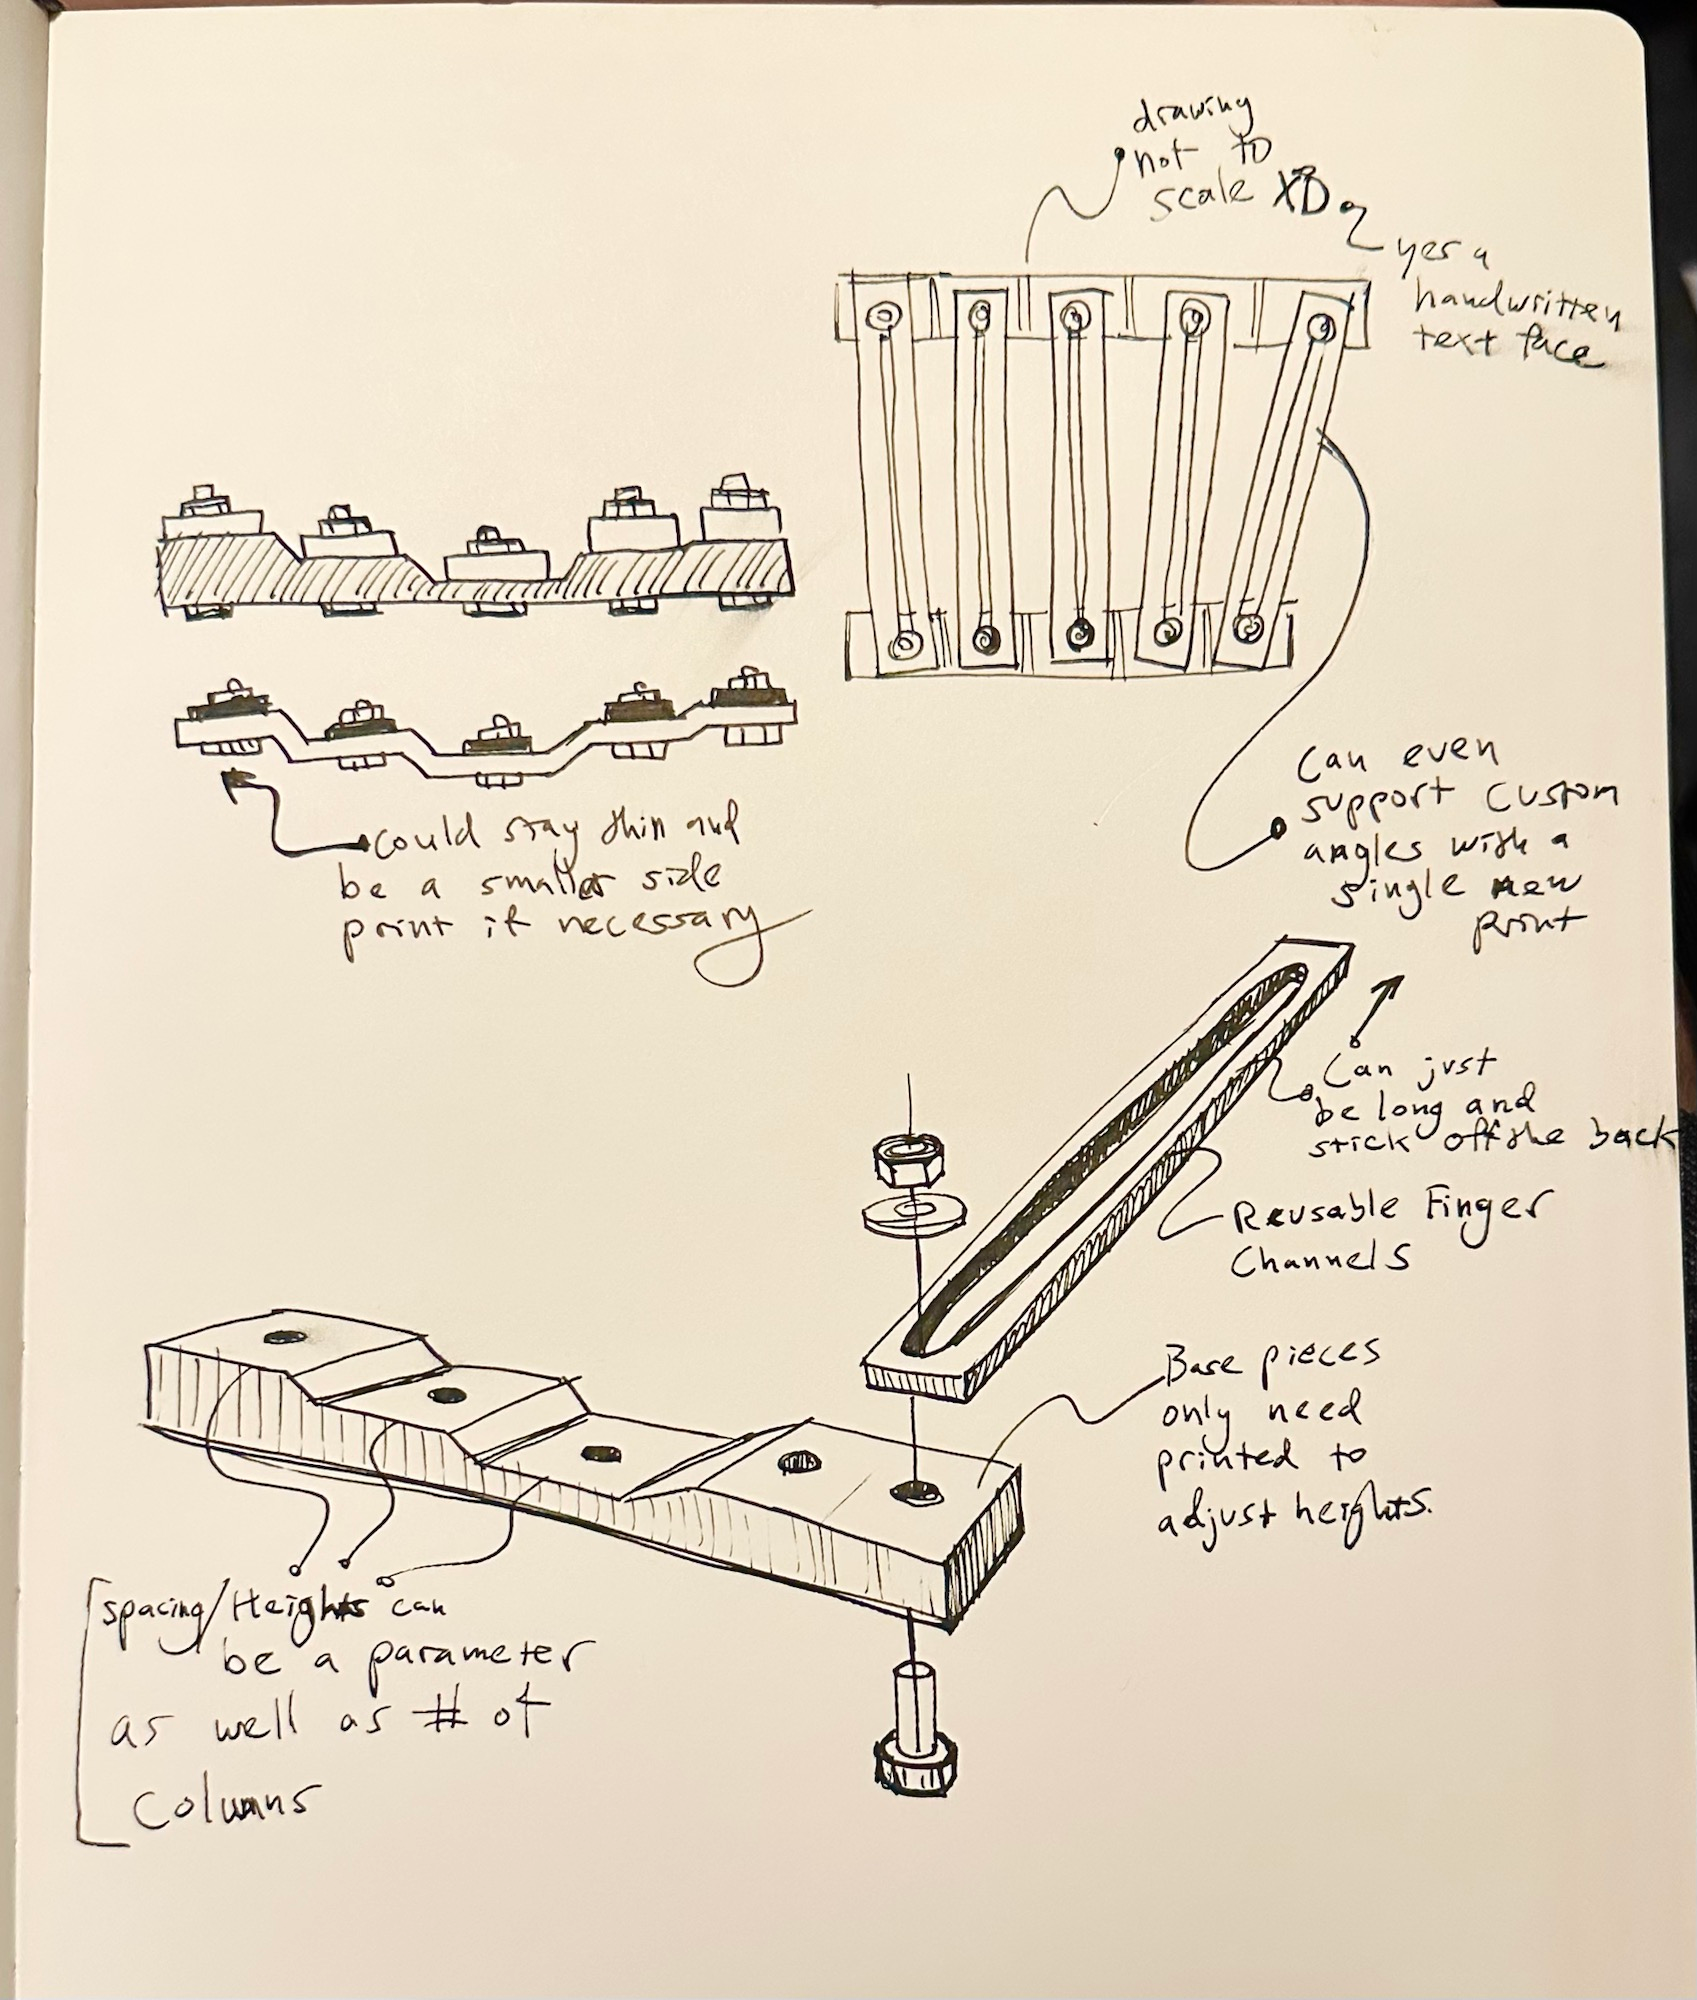 drawing
not to
scale XD
yes a
handwritten
text face
could stay thin and
be a smaller side
print if necessary
Can even
support custom
angles with a
single new
print
Can just
be long and
stick off the back
Reusable Finger
Channels
Base pieces
only need
printed to
adjust heights.
spacing/Heights can
be a parameter
as well as # of
Columns